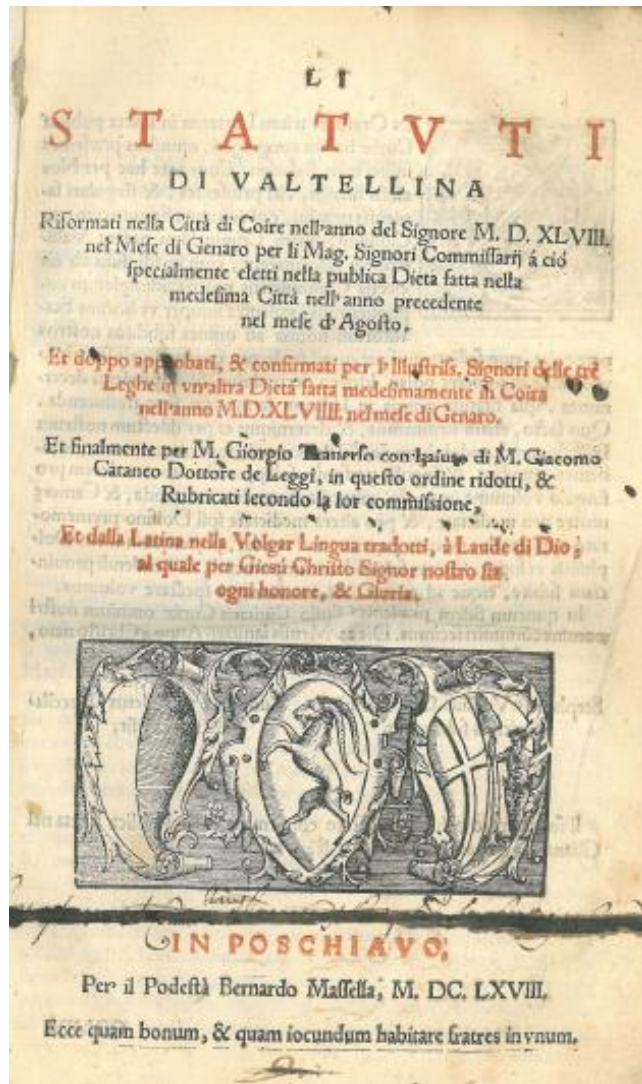 LI
STATVTI
DI VALTELLINA
Riformati nella Città di Coire nell'anno del Signore M. D. XLVIII.
nel Mese di Genaro per li Mag. Signori Commissarij á ciò
specialmente eletti nella publica Dieta fatta nella
medesima Città nell'anno precedente
nel mese d'Agosto.
Et doppo approbati, & confirmati per l'Illustriss. Signori delle trè
Leghe in vn'altra Dieta fatta medesimamente in Coira
nell'anno M.D.XLVIIII. nel mese di Genaro.
Et finalmente per M. Giorgio Trauerso con l'aiuto di M. Giacomo
Cataneo Dottore de Leggi, in questo ordine ridotti, &
Rubricati secondo la lor commissione,
Et dalla Latina nella Volgar Lingua tradotti, à Laude di Dio,
al quale per Giesú Christo Signor nostro sia
ogni honore, & Gloria.
IN POSCHIAVO,
Per il Podestà Bernardo Massella, M. DC. LXVIII.
Ecce quam bonum, & quam iocundum habitare fratres in vnum.